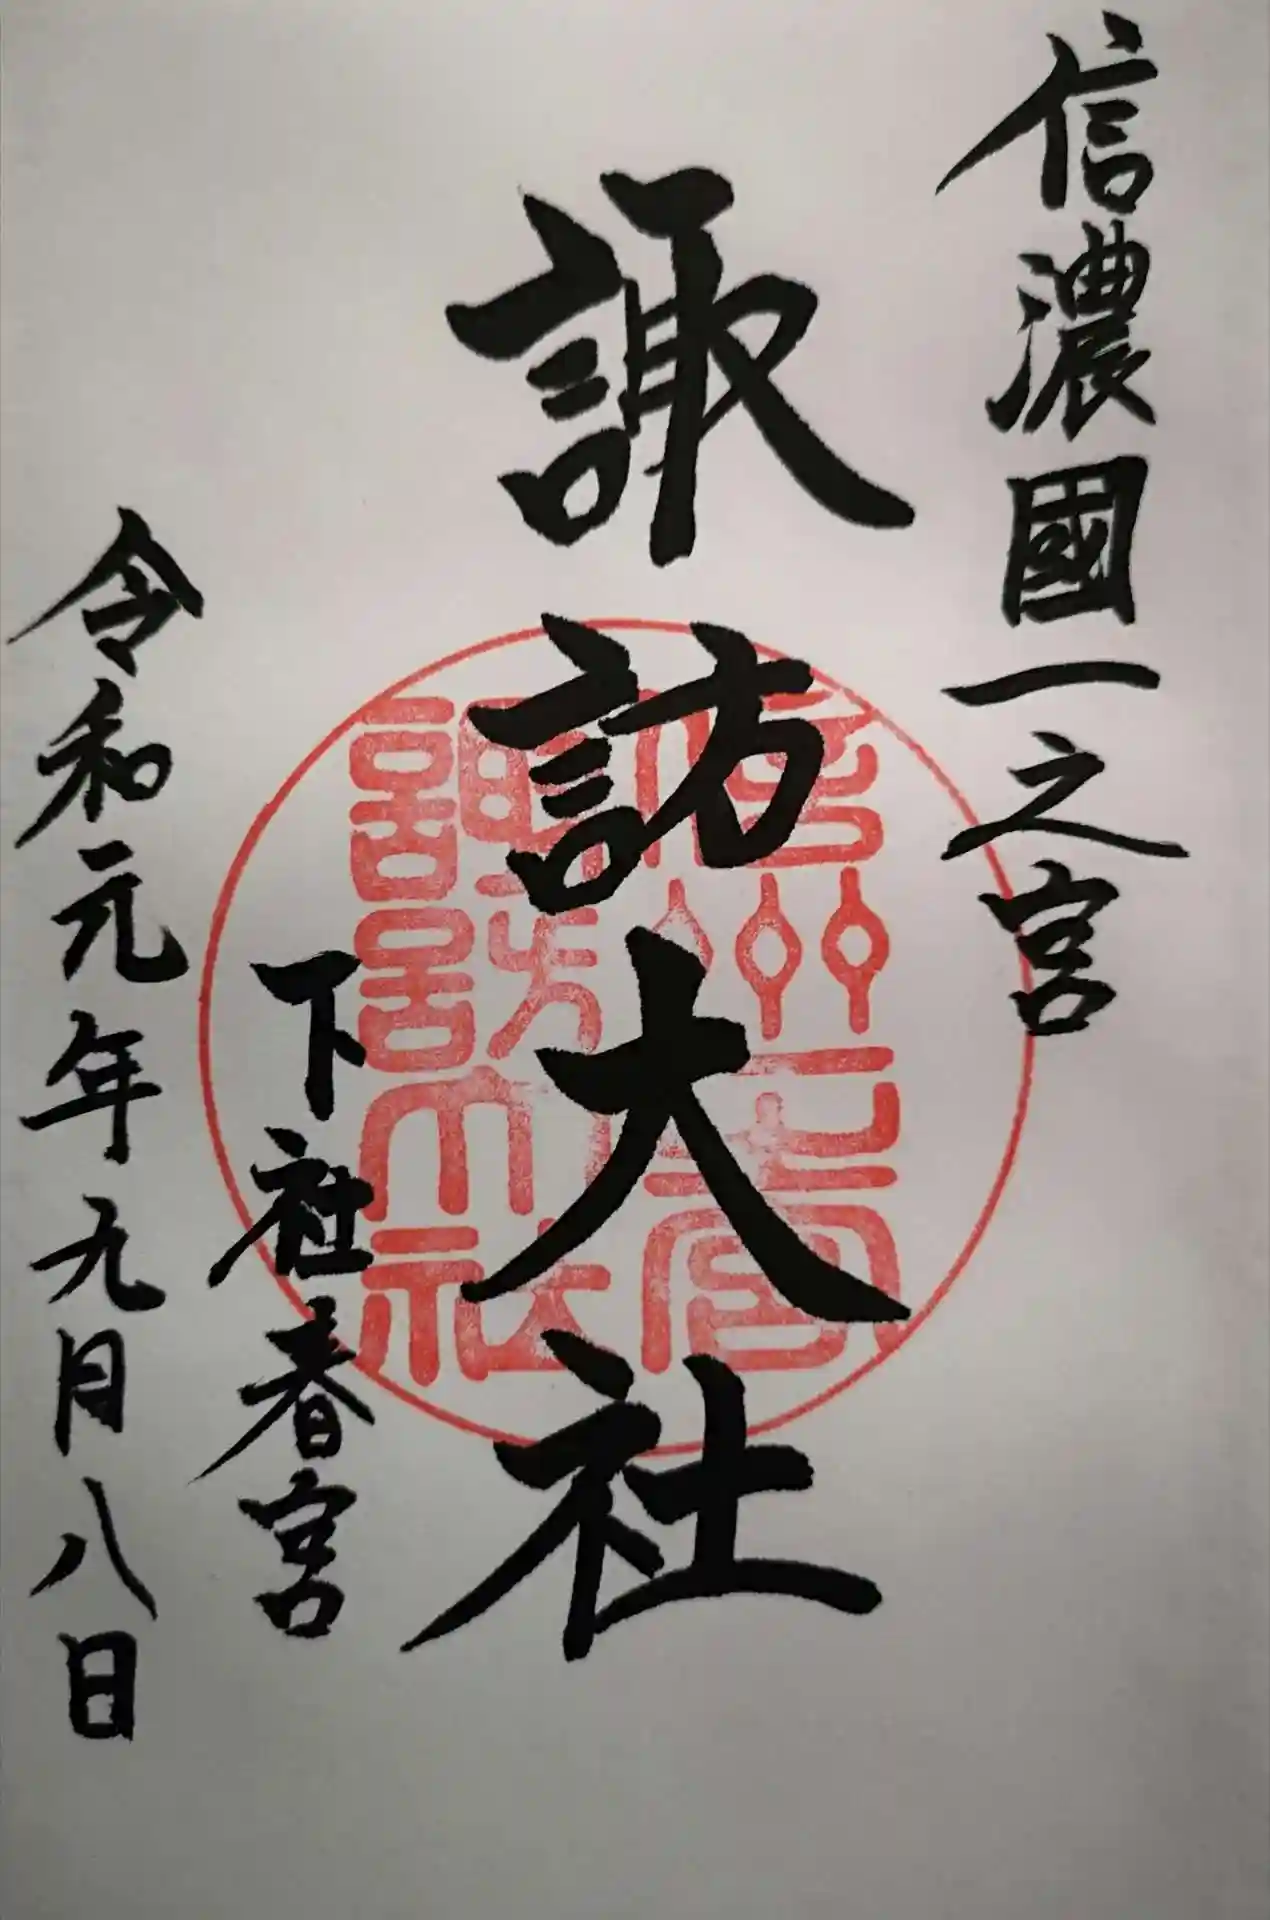 信濃國一之宮
諏訪大社
下社春宮
令和元年九月八日
信州一之宮
諏訪大社